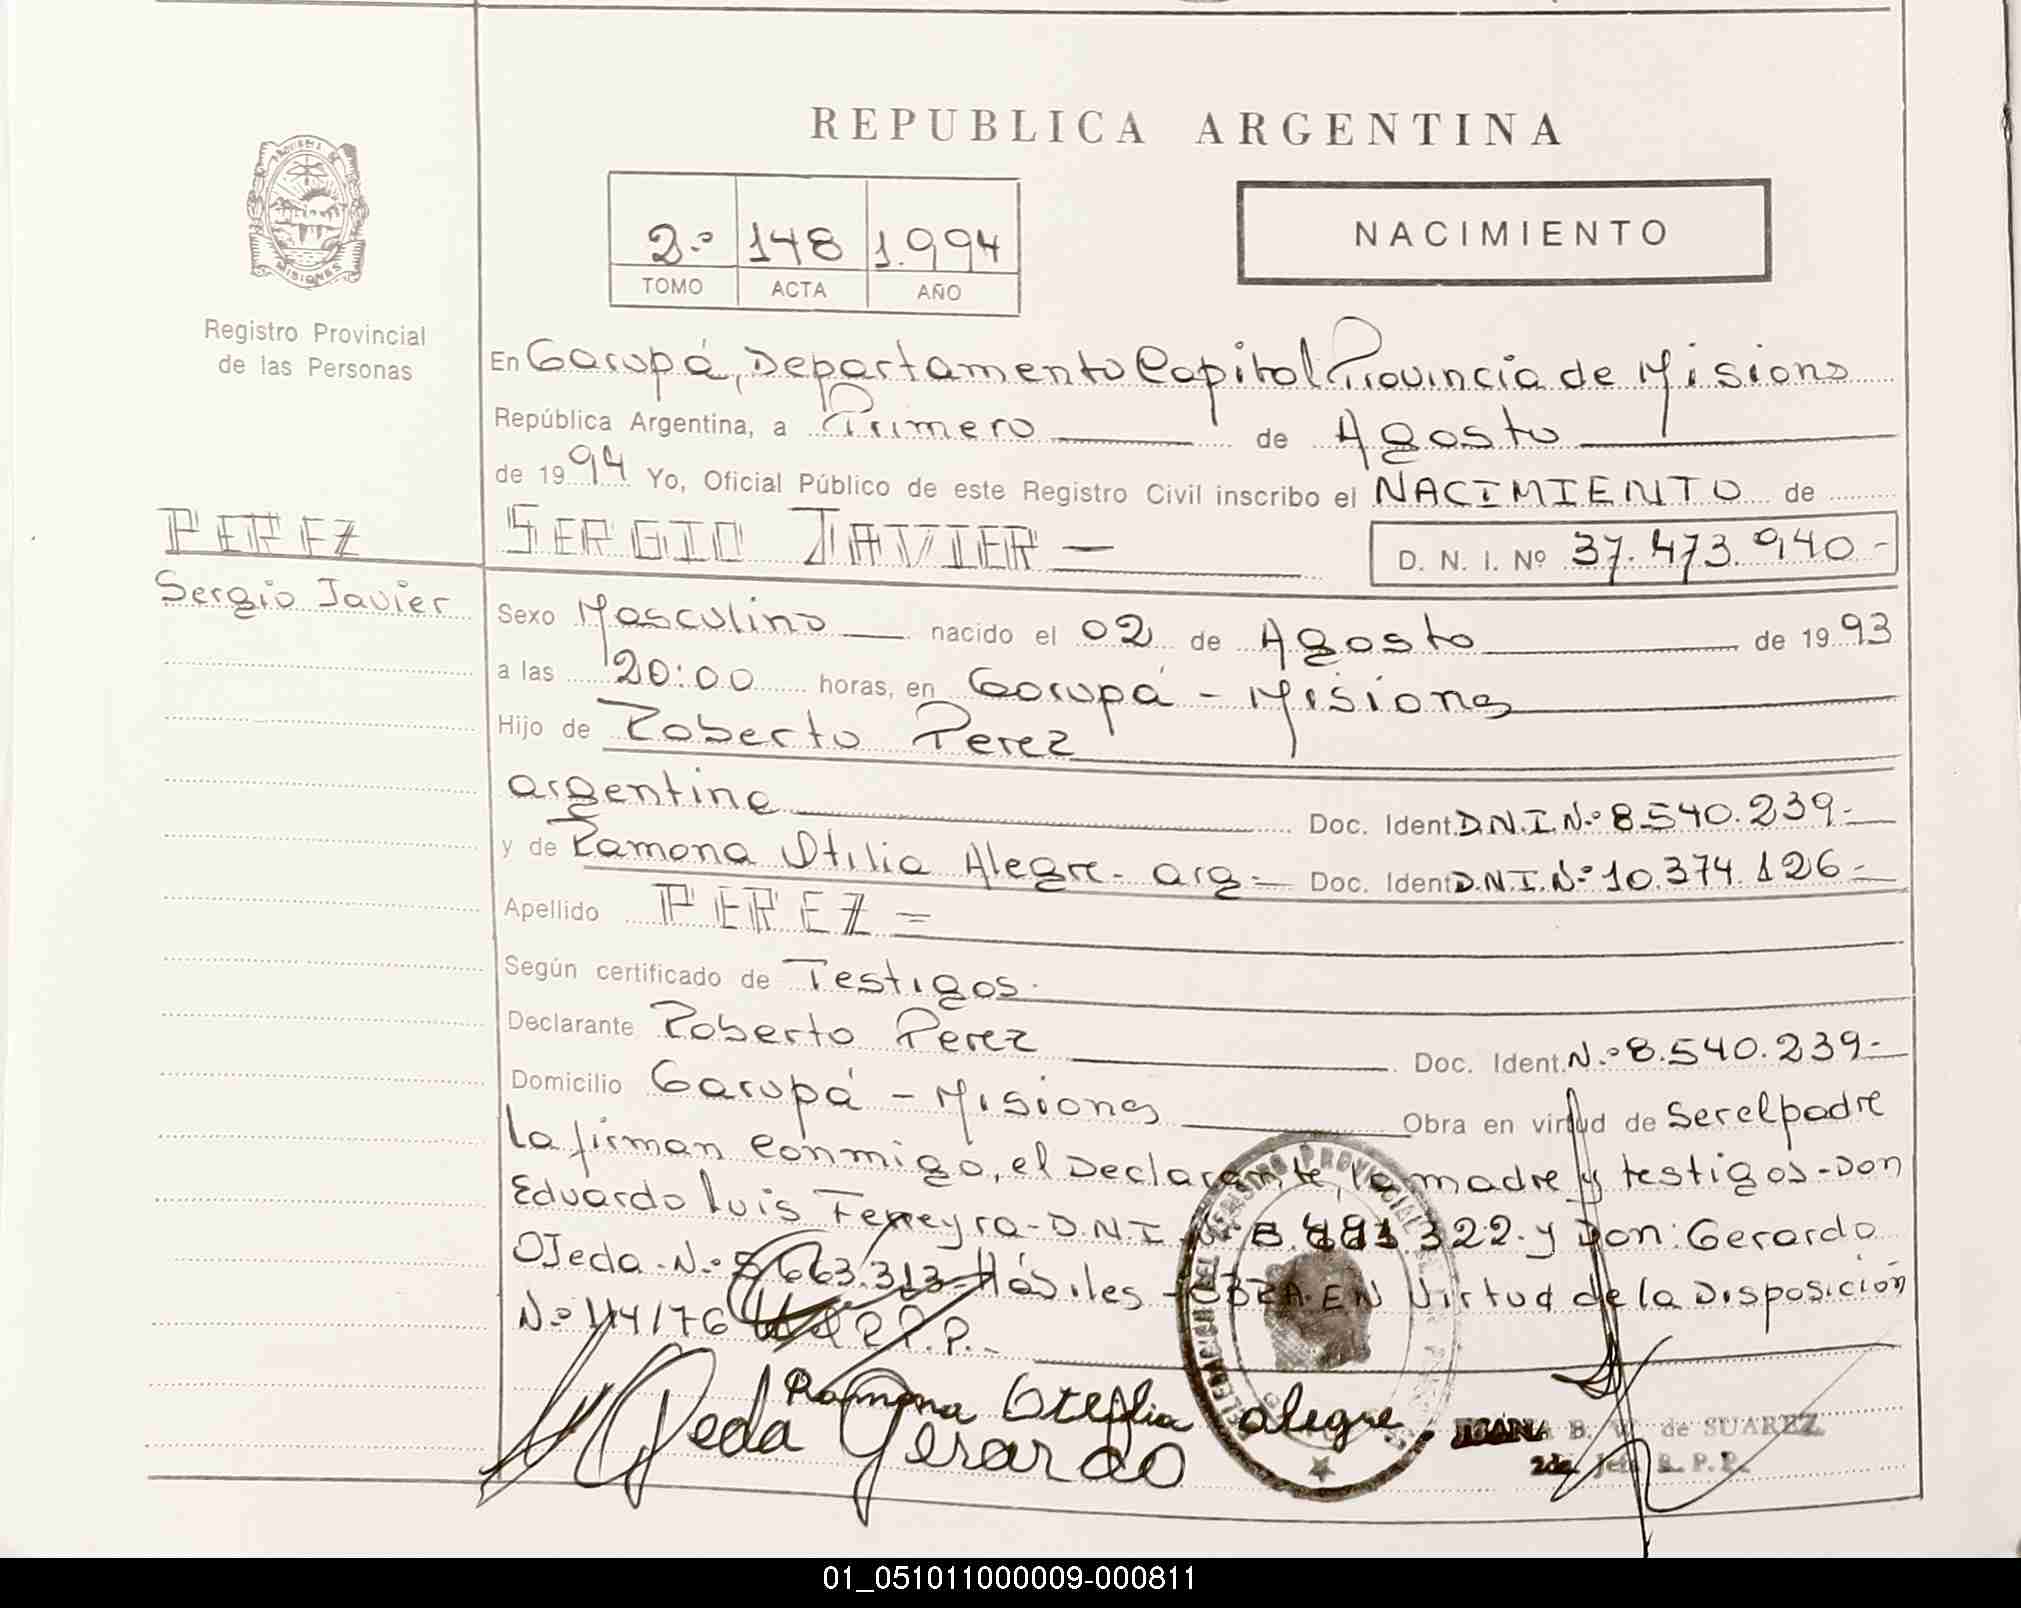 REPUBLICA ARGENTINA
PROVINCIA DE MISIONES
2.º 148 1.994
TOMO ACTA AÑO
NACIMIENTO
Registro Provincial
de las Personas
En Garupá, Departamento Capital Provincia de Misions
República Argentina, a Primero de Agosto
de 1994 Yo, Oficial Público de este Registro Civil inscribo el NACIMIENTO de
PEREZ
Sergio Javier
SERGIO JAVIER — D. N. I. Nº 37.473.940-
Sexo Masculino nacido el 02 de Agosto de 1993
a las 20:00 horas, en Garupá - Misiones
Hijo de Roberto Perez
argentino Doc. Ident. D.N.I. N.º 8.540.239-
y de Ramona Otilia Alegre - arg = Doc. Ident D.N.I. Nº 10.374.126-
Apellido PEREZ =
Según certificado de Testigos.
Declarante Roberto Perez Doc. Ident. N.º 8.540.239-
Domicilio Garupá - Misiones Obra en virtud de Ser el padre
La firman conmigo, el Declarante, la madre y testigos - Don
Eduardo Luis Ferreyra - D.N.I. 322. y Don: Gerardo
Ojeda - N.º 5.663.313 - Hábiles - OBRA EN Virtud de la Disposición
N.º 114/76 R.P.P.-
Ramona Otefilia alegre
Ojeda Gerardo
JUANA B. W. de SUAREZ
2da. Jefe R. P. P.
01_051011000009-000811